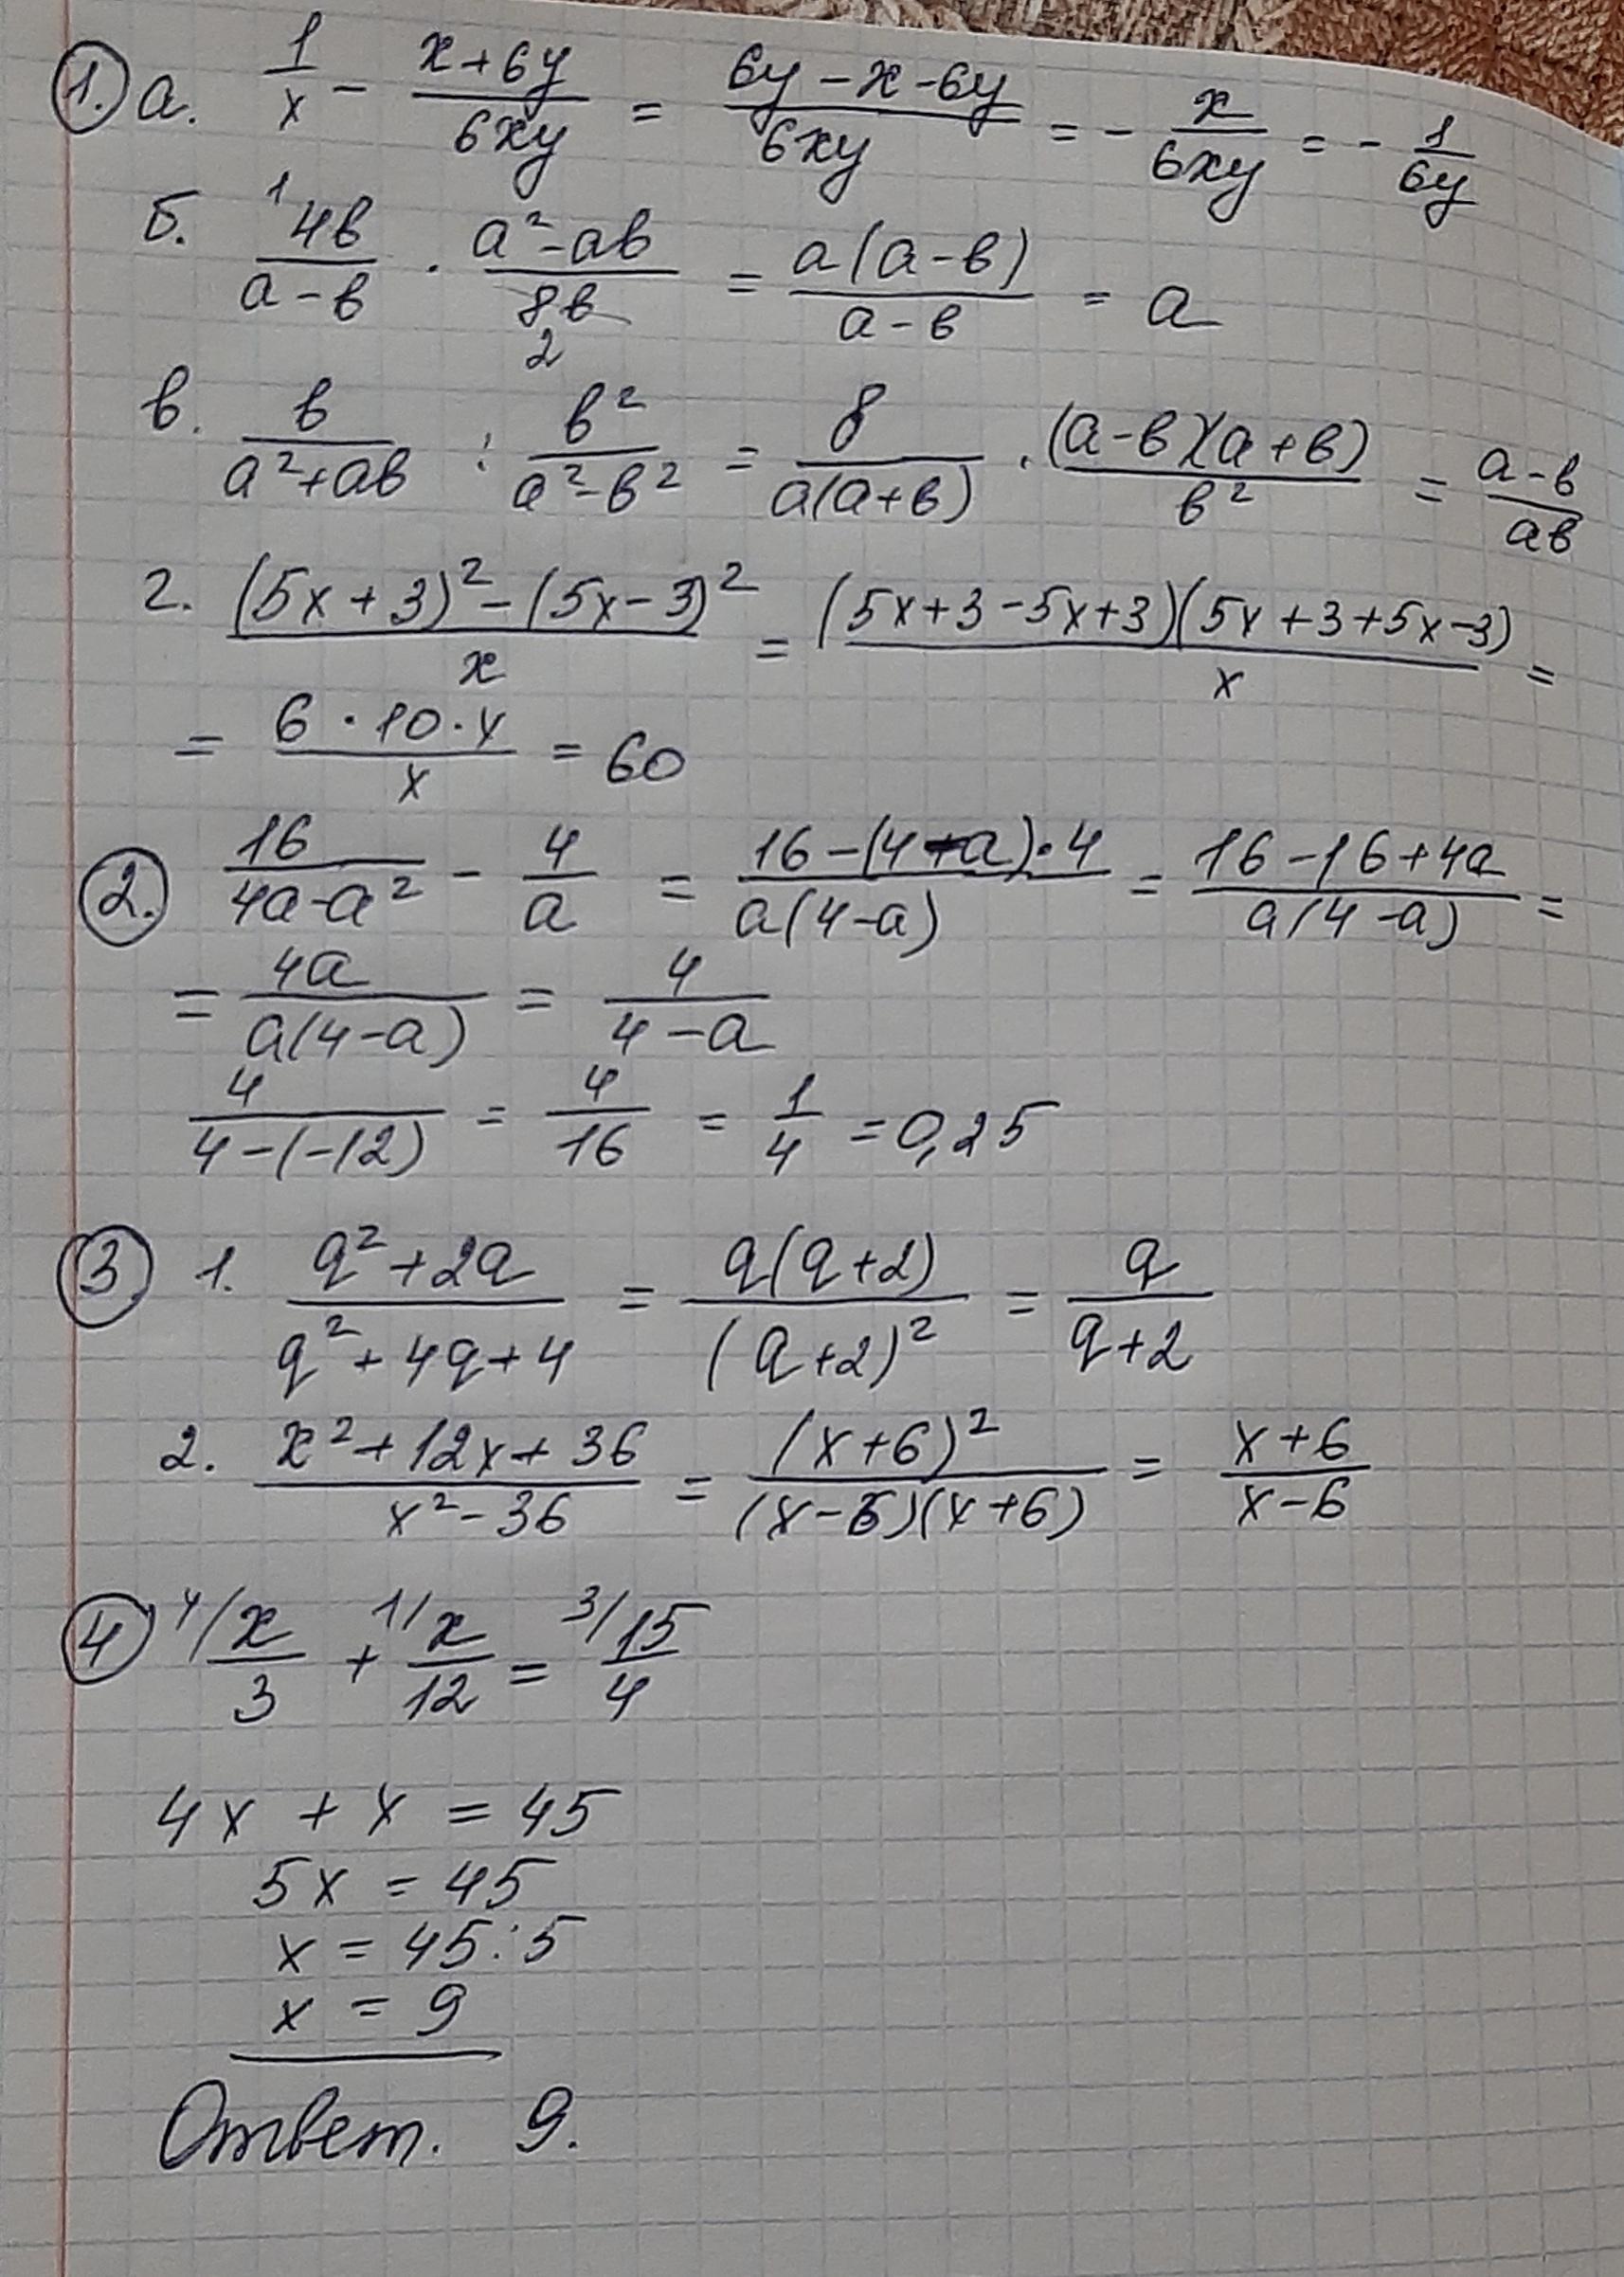 1. а. 1/x - (x+6y)/(6xy) = (6y-x-6y)/(6xy) = - x/(6xy) = - 1/(6y)
б. ¹4в/(а-в) · (а²-ав)/(8в) 2 = а(а-в)/(а-в) = а
в. в/(а²+ав) : в²/(а²-в²) = 8/(а(а+в)) · (а-в)(а+в)/в² = (а-в)/(ав)
г. ((5x+3)²-(5x-3)²)/x = (5x+3-5x+3)(5x+3+5x-3)/x =
= (6·10·x)/x = 60
2. 16/(4а-а²) - 4/а = (16-(4-а)·4)/(а(4-а)) = (16-16+4а)/(а(4-а)) =
= 4а/(а(4-а)) = 4/(4-а)
4/(4-(-12)) = 4/16 = 1/4 = 0,25
3 1. (q²+2q)/(q²+4q+4) = q(q+2)/(q+2)² = q/(q+2)
2. (x²+12x+36)/(x²-36) = (x+6)²/((x-6)(x+6)) = (x+6)/(x-6)
4 ⁴/ x/3 + ¹/ x/12 = ³/ 15/4
4x + x = 45
5x = 45
x = 45:5
x = 9
Ответ. 9.